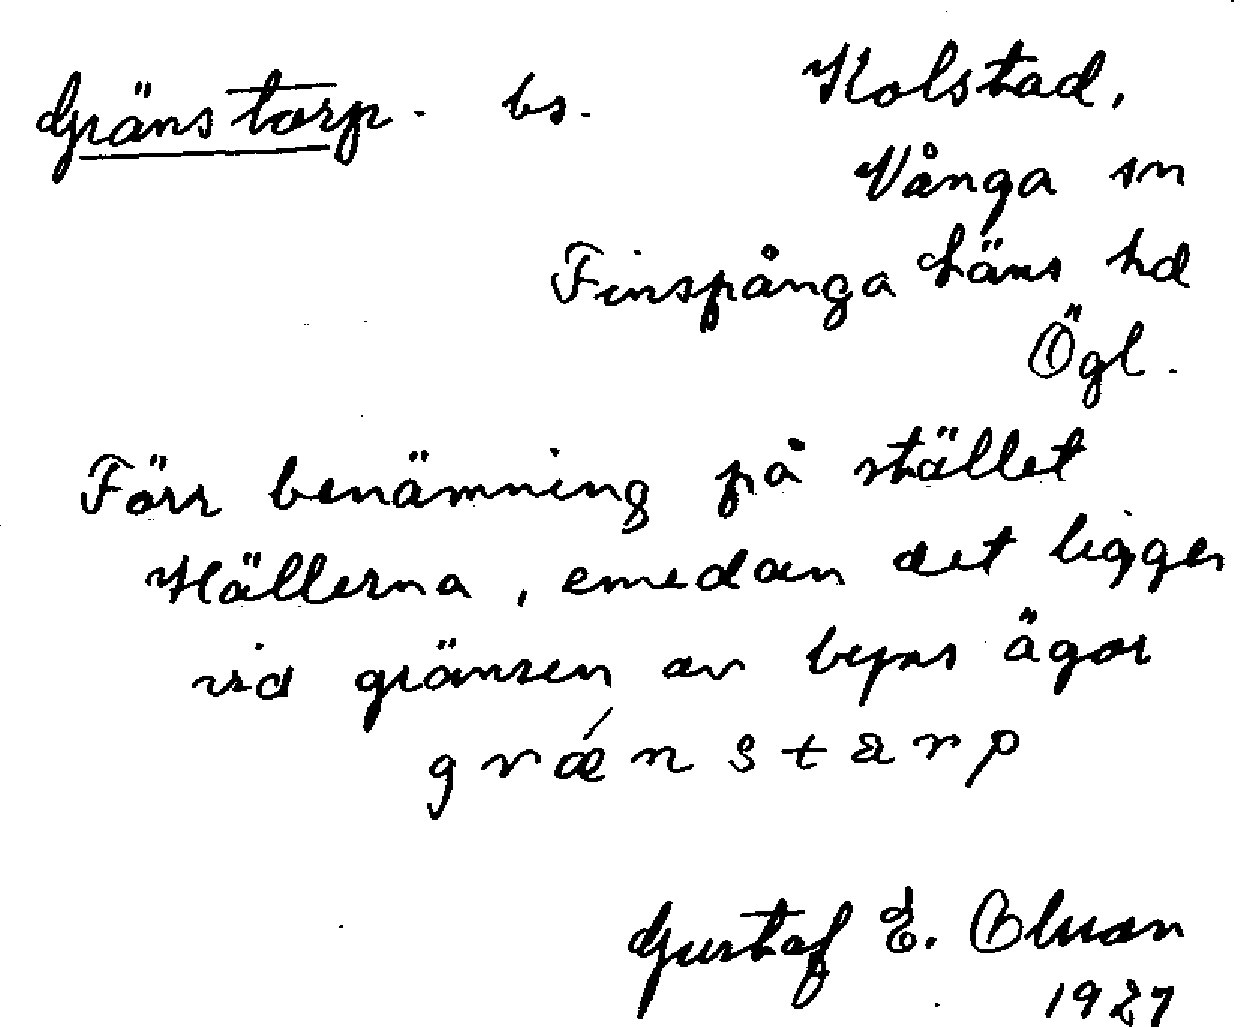 Gränstorp. bs.
Kolstad,
Vånga sn
Finspånga läns hd
Ögl.
Förr benämning på stället
Hällerna, emedan det ligger
vid gränsen av byns ägor
grǽnstarp
Gustaf E. Olsson
1927